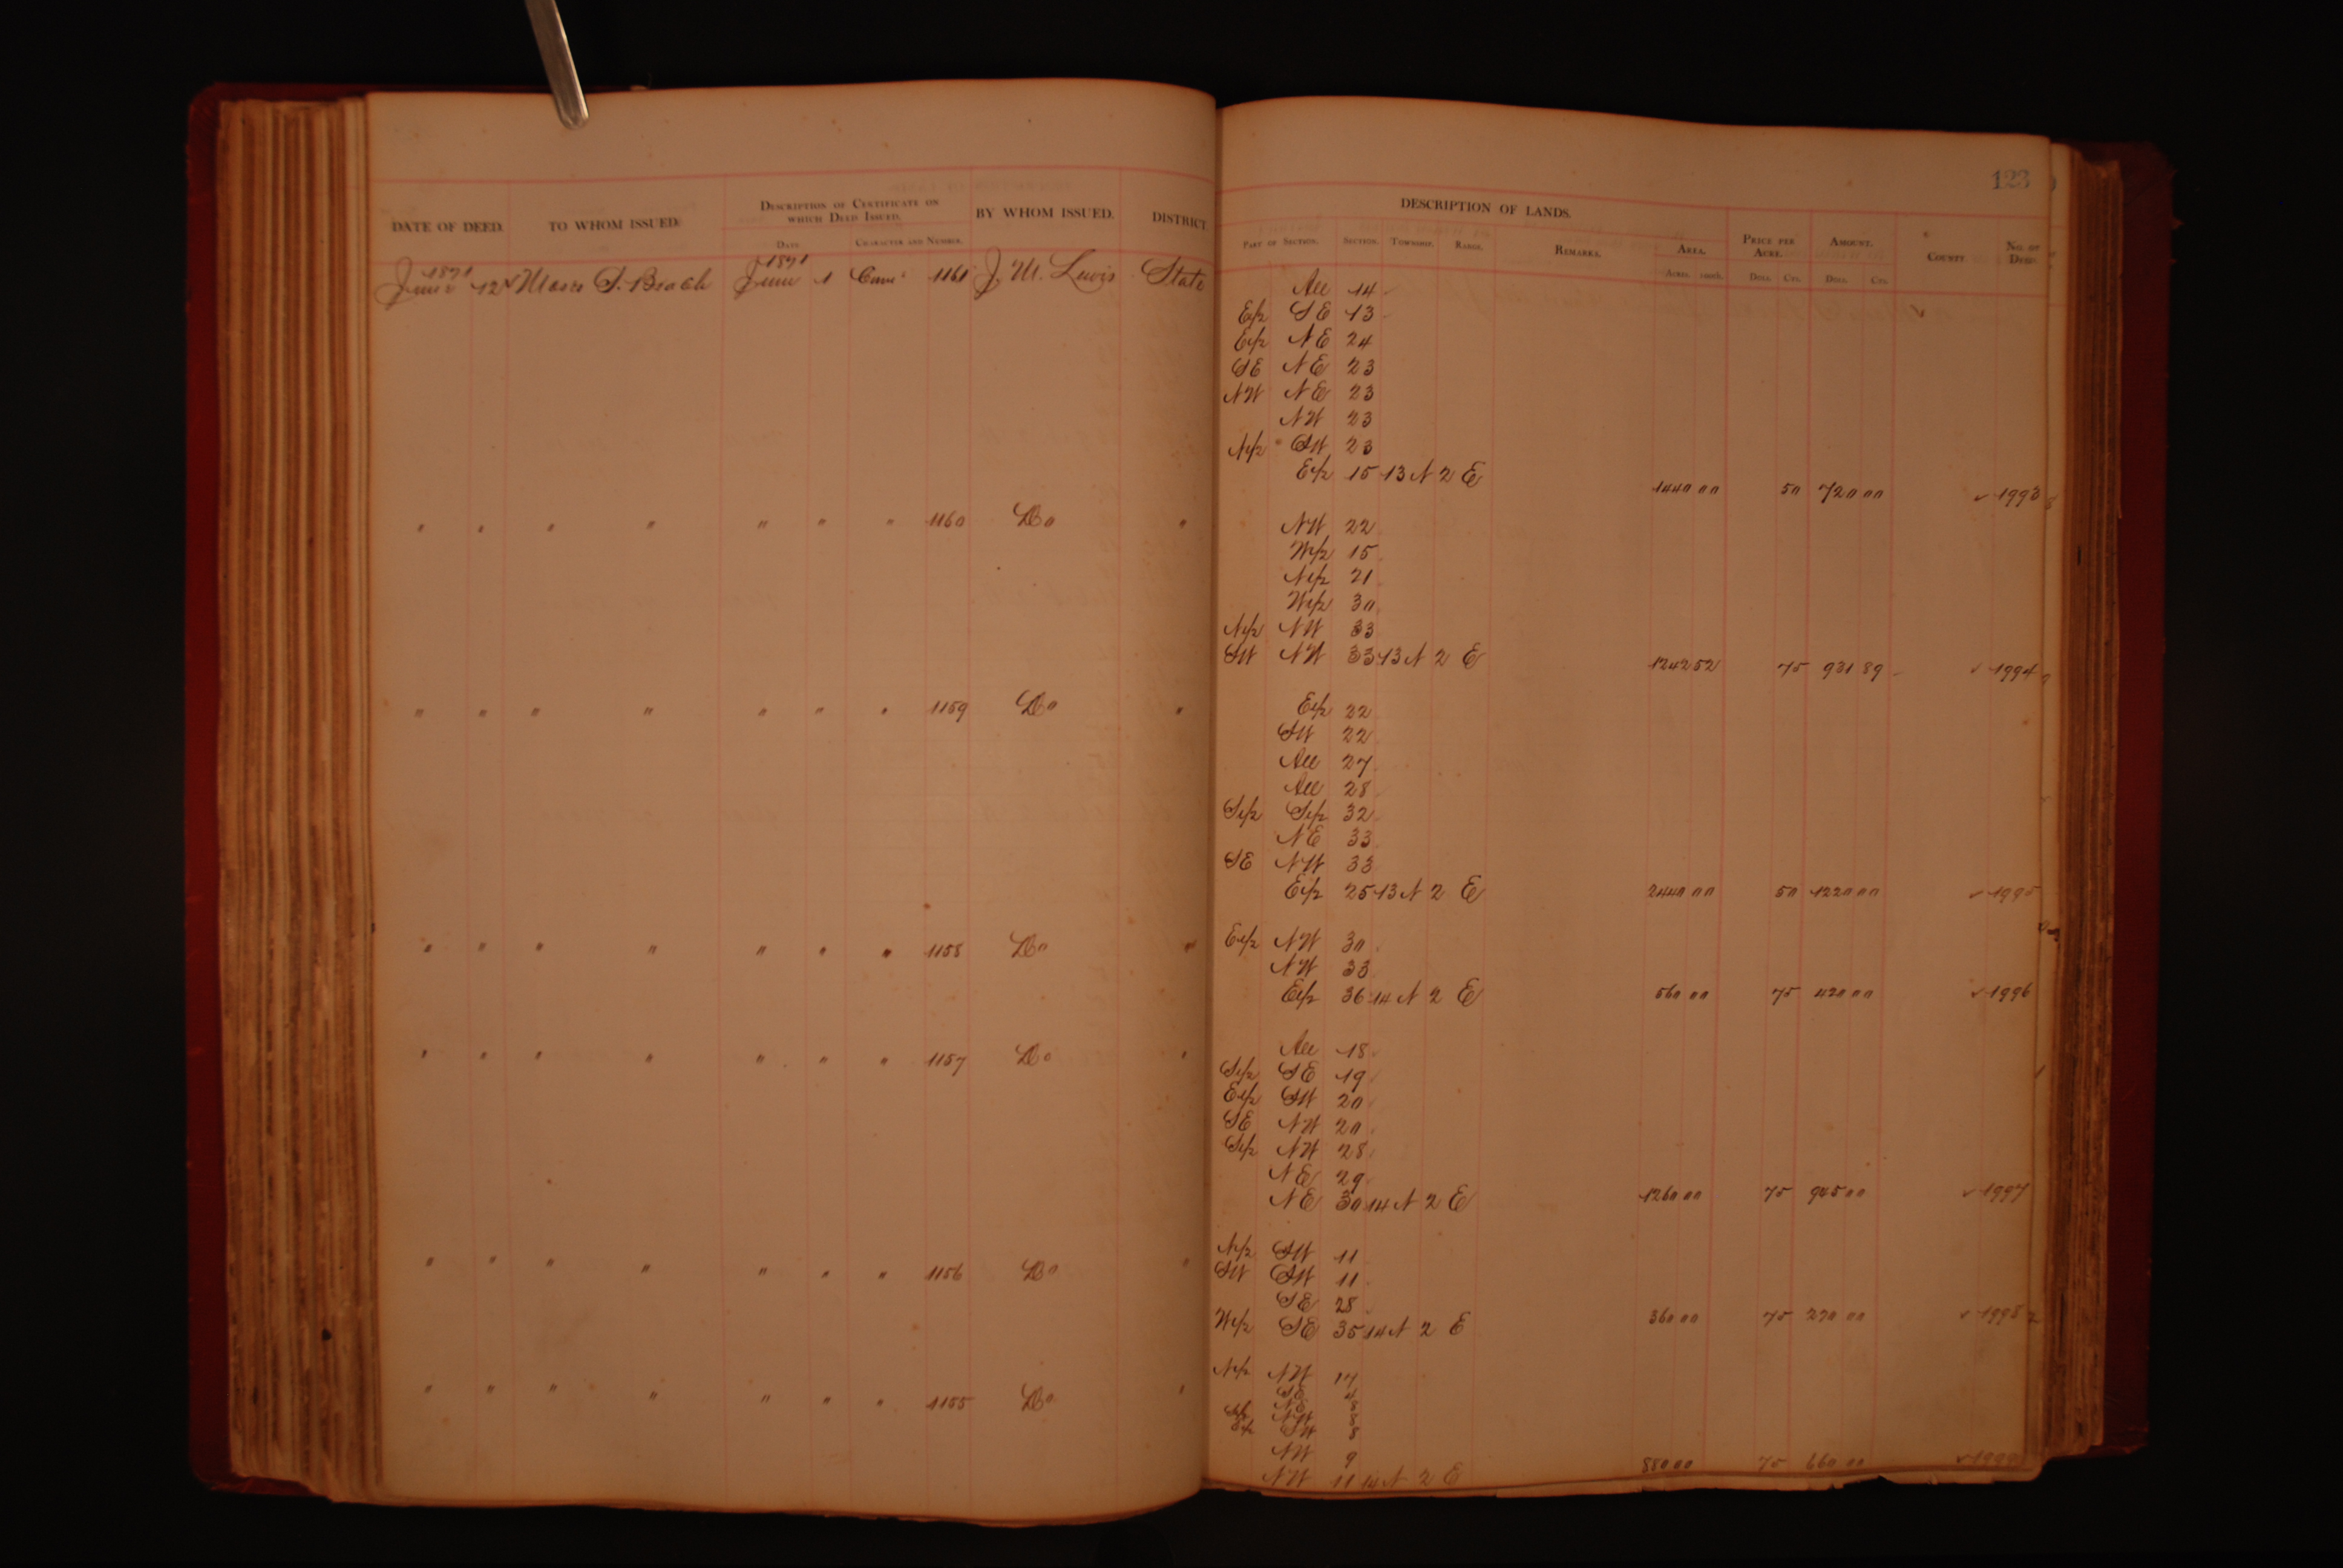 123
DATE OF DEED. TO WHOM ISSUED. DESCRIPTION OF CERTIFICATE ON WHICH DEED ISSUED. BY WHOM ISSUED. DISTRICT
DATE. CHARACTER AND NUMBER.
DESCRIPTION OF LANDS.
PART OF SECTION. SECTION. TOWNSHIP. RANGE. REMARKS. AREA. PRICE PER ACRE. AMOUNT. COUNTY. NO. OF DEED.
ACRES. 100ths. DOLL. CTS. DOLL. CTS.
1871 1871
June 12 Moses S. Beach June 1 1161 J. M. Lewis State All 14
E1/2 SE 13
E1/2 NE 24
SE NE 23
NW NE 23
NW 23
N1/2 SW 23
E1/2 15 13 N 2 E 1440 00 50 720 00 ✓ 1993
" " " " " " " 1160 Do " NW 22
W1/2 15
N1/2 21
W1/2 30
N1/2 NW 33
SW NW 33 13 N 2 E 1242 52 75 931 89 ✓ 1994
" " " " " " " 1159 Do " E1/2 22
SW 22
All 27
All 28
S1/2 S1/2 32
NE 33
SE NW 33
E1/2 25 13 N 2 E 2440 00 50 1220 00 ✓ 1995
" " " " " " " 1158 Do " E1/2 NW 30
NW 33
E1/2 36 14 N 2 E 560 00 75 420 00 ✓ 1996
" " " " " " " 1157 Do " All 18
S1/2 SE 19
E1/2 SW 20
SE NW 20
S1/2 NW 28
NE 29
NE 30 14 N 2 E 1260 00 75 945 00 ✓ 1997
" " " " " " " 1156 Do " N1/2 SW 11
SW SW 11
SE 28
W1/2 SE 35 14 N 2 E 360 00 75 270 00 ✓ 1998
" " " " " " " 1155 Do " N1/2 NW 17
SE
NE 8
NW 8
SW 8
NW 9
NW 11 14 N 2 E 880 00 75 660 00 ✓ 1999